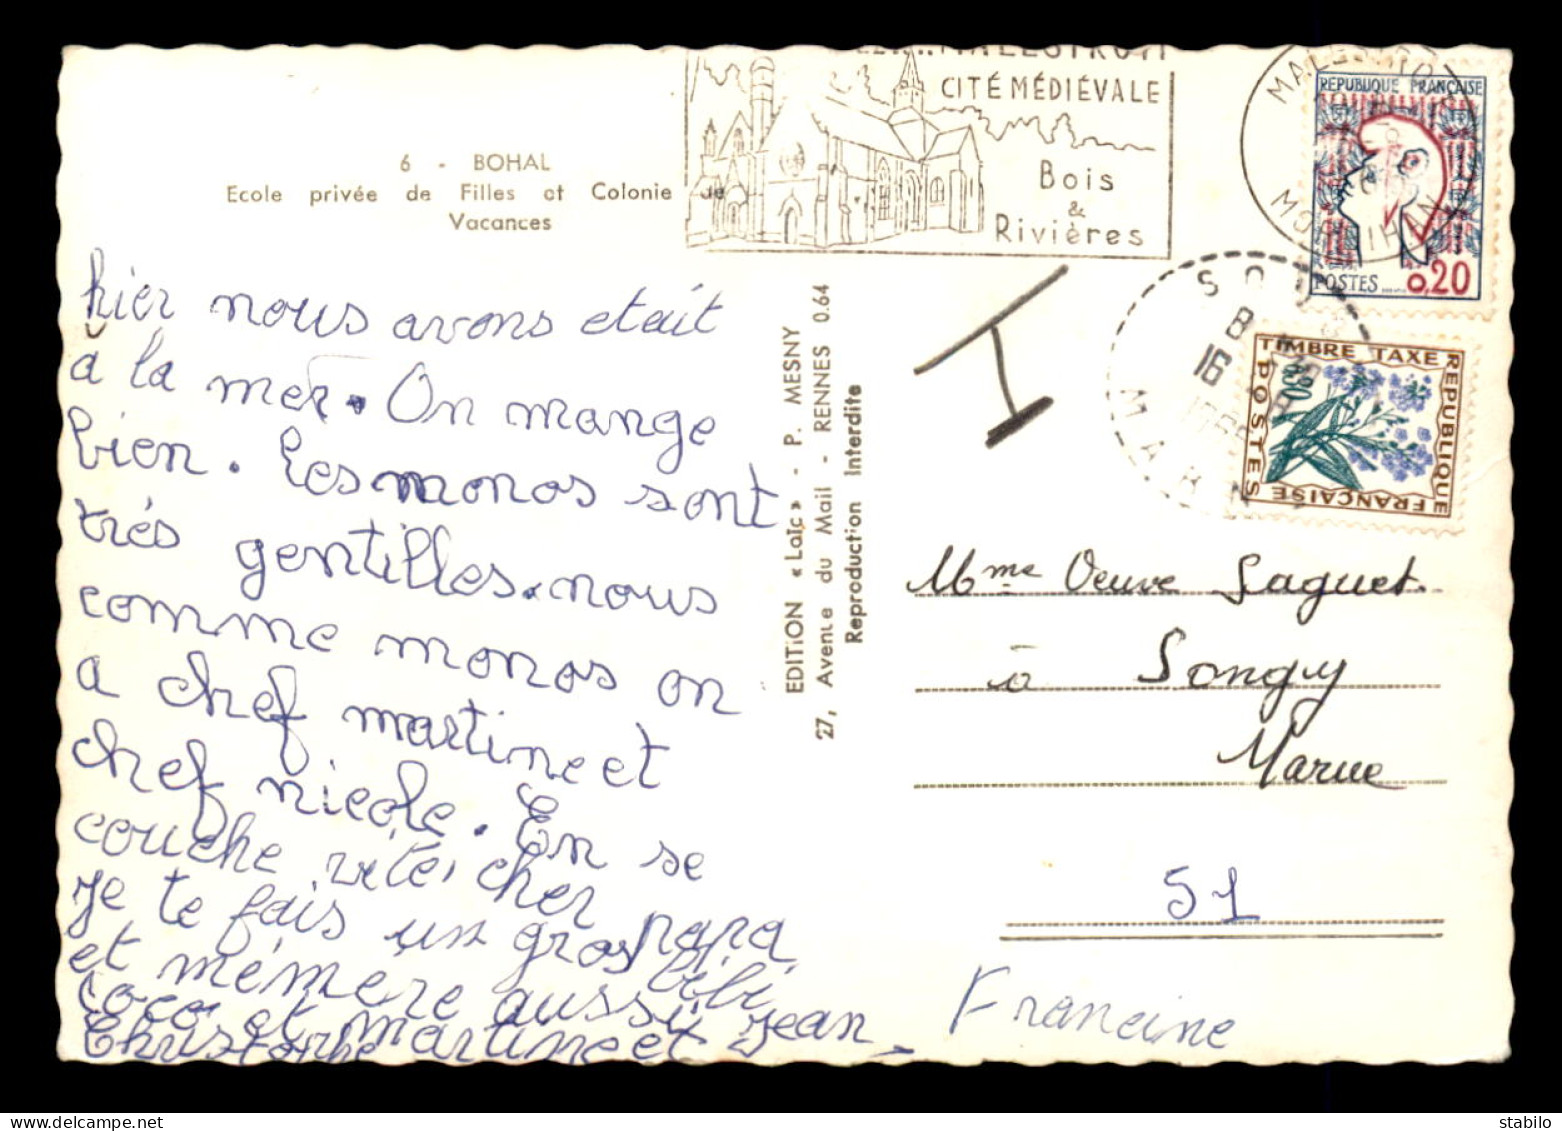 6 - BOHAL
Ecole privée de Filles et Colonie de
Vacances
MALESTROIT
CITÉ MÉDIÉVALE
Bois
&
Rivières
MORBIHAN
RÉPUBLIQUE FRANÇAISE
POSTES 0,20
8
16
MARNE
TIMBRE TAXE
REPUBLIQUE
FRANÇAISE
POSTES
T
hier nous avons etait
à la mer. On mange
bien. Les monos sont
trés gentilles. nous
comme monos on
a chef martine et
chef nicole. En se
couche vite, cher papa
Je te fais un gros bébi
et mémere aussi
coco et martine et jean
Christophe
EDITION « Laïc » - P. MESNY
27, Avenue du Mail - RENNES 0.64
Reproduction Interdite
Mme Veuve Laguet
à Songy
Marne
51
Francine